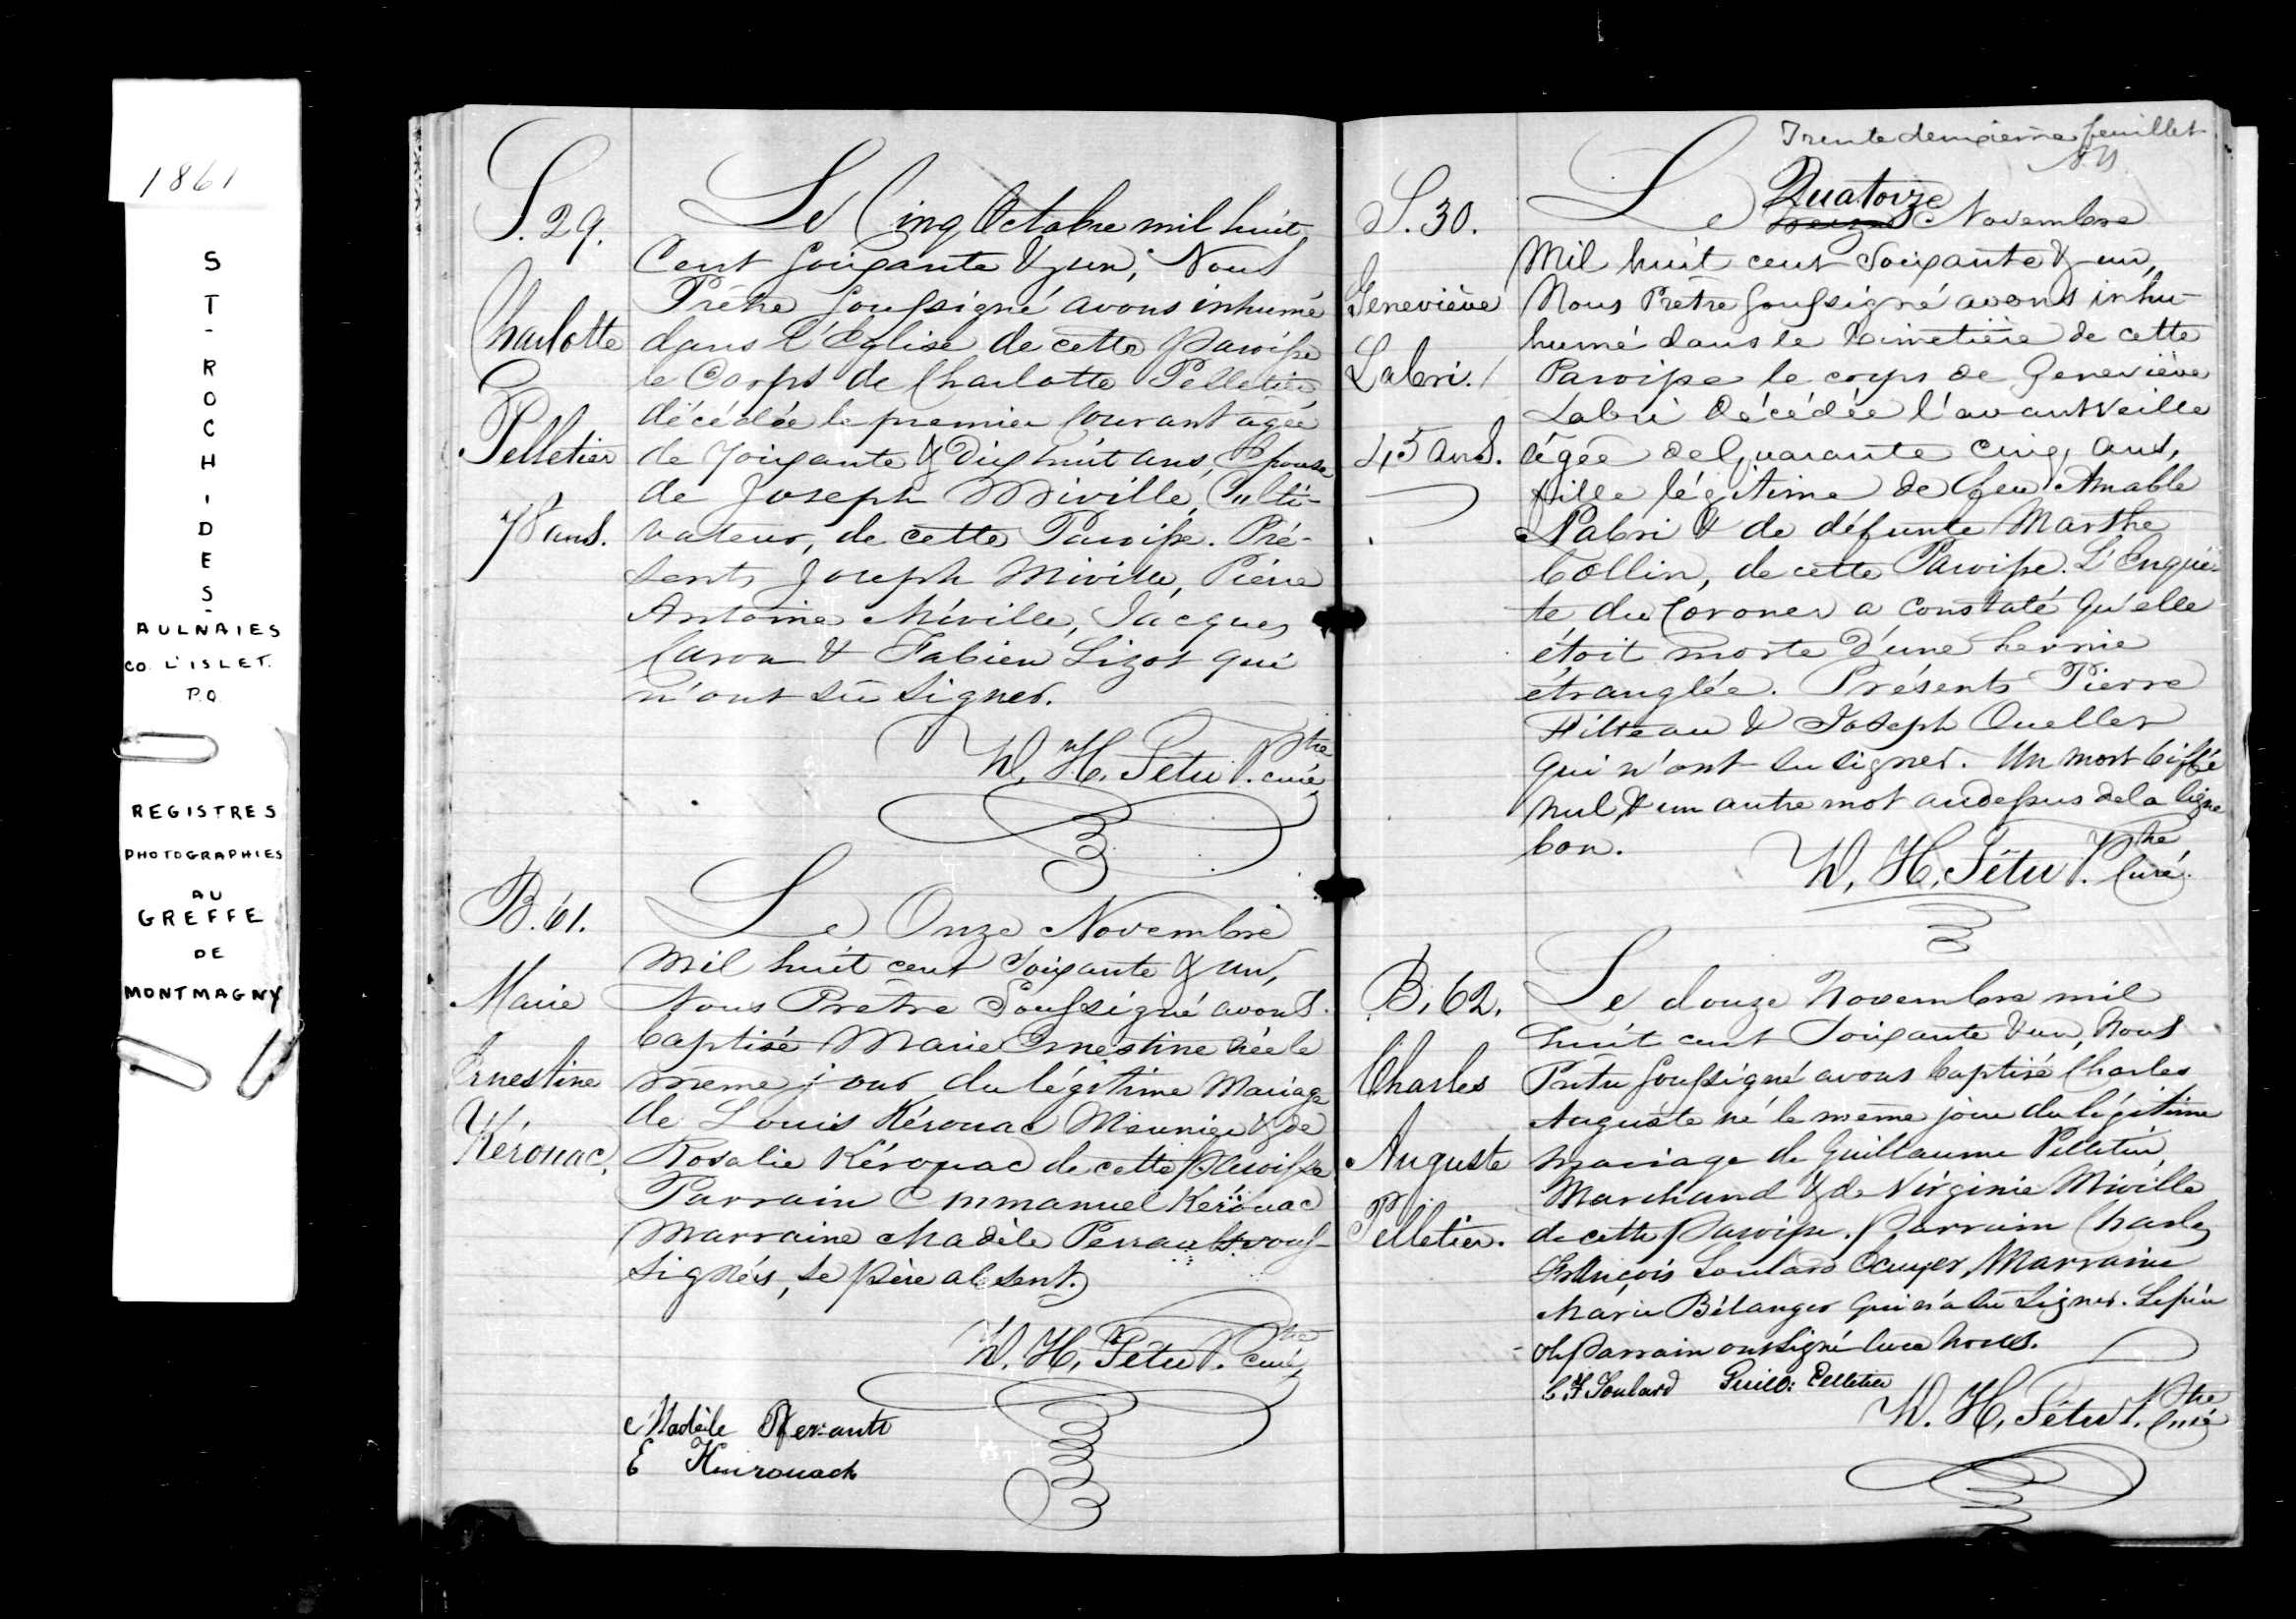 1861
ST-ROCH-DES-
AULNAIES
CO. L'ISLET.
P.Q.
REGISTRES
PHOTOGRAPHIES
AU
GREFFE
DE
MONTMAGNY
S. 29.
Charlotte
Pelletier
78 ans.
Le Cinq Octobre mil huit
Cent soixante & un, Nous
Prêtre soussigné avons inhumé
dans l'Eglise de cette Paroisse
le Corps de Charlotte Pelletier
décédée le premier Courant agée
de soixante & Dix huit ans, Epouse
de Joseph Miville, Culti-
vateur, de cette Paroisse. Pré-
sents Joseph Miville, Piérre
Antoine Miville, Jacques
Caron & Fabien Lizot qui
n'ont sû signer.
W. H. Têtu Ptre
curé
B. 61.
Marie
Ernestine
Kérouac.
Le Onze Novembre
Mil huit cent soixante & un,
Nous Prêtre Soussigné avons
baptisé Marie Ernestine née le
même jour du légitime Mariage
de Louis Kérouac Meunier & de
Rosalie Kérouac de cette Paroisse
Parrain Emmanuel Kérouac
Marraine Madèle Perrault sous-
signés, le père absent.
W. H. Têtu Ptre
curé
Madèile Perrault
E Keirouack
Trente deuxième feuillet
S. 30.
Geneviève
Labri.
45 ans.
Le Quatorze
treize Novembre
Mil huit cent Soixante & un,
Nous Prêtre soussigné avons inhu-
humé dans le Cimetière de cette
Paroisse le corps de Geneviève
Labri décédée l'avantveille
âgée de Quarante cinq ans,
fille légitime de feu Amable
Labri & de défunte Marthe
Collin, de cette Paroisse. L'Enquê-
te du Coroner a constaté qu'elle
étoit morte d'une hernie
étranglée. Présents Pierre
Filteau & Joseph Ouellet
qui n'ont su signer. Un mot biffé
nul & un autre mot audessus de la ligne
bon.
W. H. Têtu Ptre
Curé.
B. 62.
Charles
Auguste
Pelletier.
Le douze Novembre mil
huit cent Soixante & un, Nous
Prêtre soussigné avons baptisé Charles
Auguste né le même jour du légitime
mariage de Guillaume Pelletier,
Marchand & de Virginie Miville
de cette Paroisse. Parrain Charles
François Soulard Ecuyer, Marraine
Marie Bélanger qui n'a su signer. Le père
& le Parrain ont signé avec nous.
C. F. Soulard Guill: Pelletier
W. H. Têtu Ptre
Curé